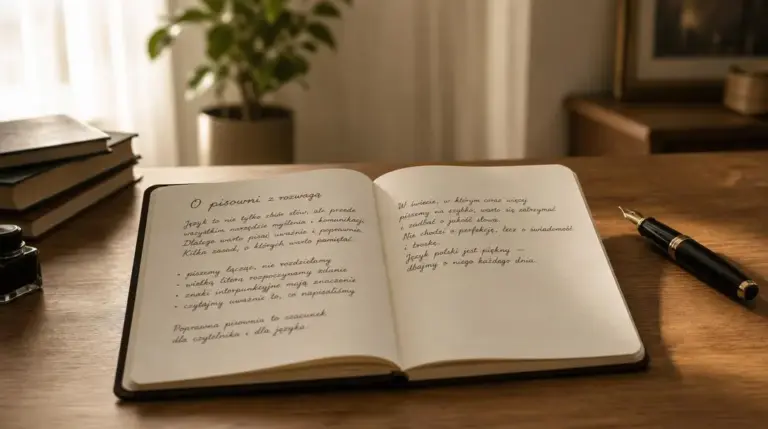 O pisowni z rozwagą
Język to nie tylko zbiór słów, ale przede
wszystkim narzędzie myślenia i komunikacji.
Dlatego warto pisać uważnie i poprawnie.
Kilka zasad, o których warto pamiętać:
• piszemy łącznie, nie rozdzielamy
• wielką literą rozpoczynamy zdanie
• znaki interpunkcyjne mają znaczenie
• czytajmy uważnie to, co napisaliśmy
Poprawna pisownia to szacunek
dla czytelnika i dla języka.
W świecie, w którym coraz więcej
piszemy na szybko, warto się zatrzymać
i zadbać o jakość słowa.
Nie chodzi o perfekcję, lecz o świadomość
i troskę.
Język polski jest piękny —
dbajmy o niego każdego dnia.